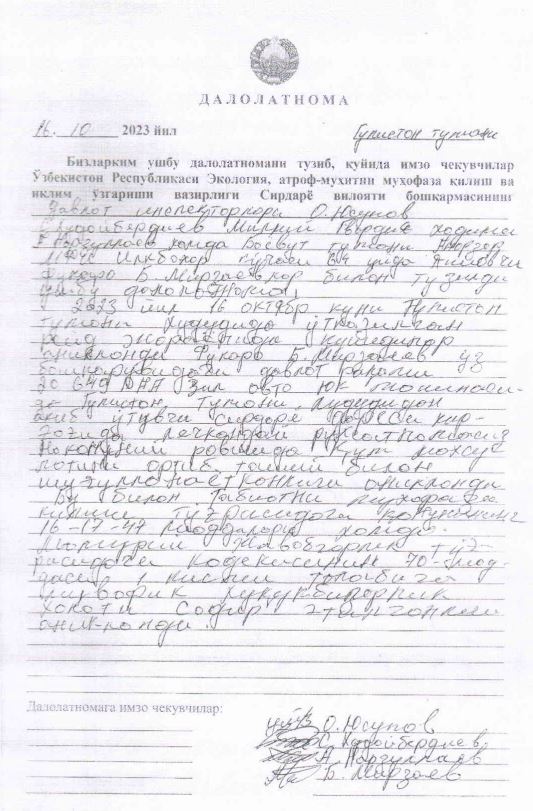 ДАЛОЛАТНОМА
16. 10 2023 йил Гулистон тумани
Бизларким ушбу далолатномани тузиб, қуйида имзо чекувчилар
Ўзбекистон Республикаси Экология, атроф-мухитни мухофаза қилиш ва
иқлим ўзгариши вазирлиги Сирдарё вилояти бошкармасининг
Давлат инспекторлари О.Юсупов
С.Худойбердиев Миллий Гвардия ходими
А.Наргуллаев хамда Боевут тумани
МФЙ кучаси уйда яшовчи
фукаро Б.Мирзаевлар билан тузилди
ушбу далолатнома
2023 йил 16 октябр куни Гулистон
тумани худудида ўтказилган
рейд жараёнида куйидагилар
аникланди Фукаро Б.Мирзаев ўз
бошкарувидаги давлат раками
20 640 Зил авто юк
Гулистон тумани худудидан
окиб ўтувчи Сирдарё дарёси кир-
гогида рухсатномасиз
ноконуний равишда кум махсу-
лотини ортиб ташиш билан
шугулланаётганлиги аникланди
Бу билан Табиатни мухофаза
килиш тугрисидаги конуннинг
16-17-47 моддалари хамда
Маъмурий Жавобгарлик туг-
рисидаги кодексининг 70-мод-
даси 1 кисми талабига
мувофик хукукбузарлик
холати содир этганлиги
аникланди.
Далолатномага имзо чекувчилар:
О.Юсупов
С.Худойбердиев
А.Наргуллаев
Б.Мирзаев